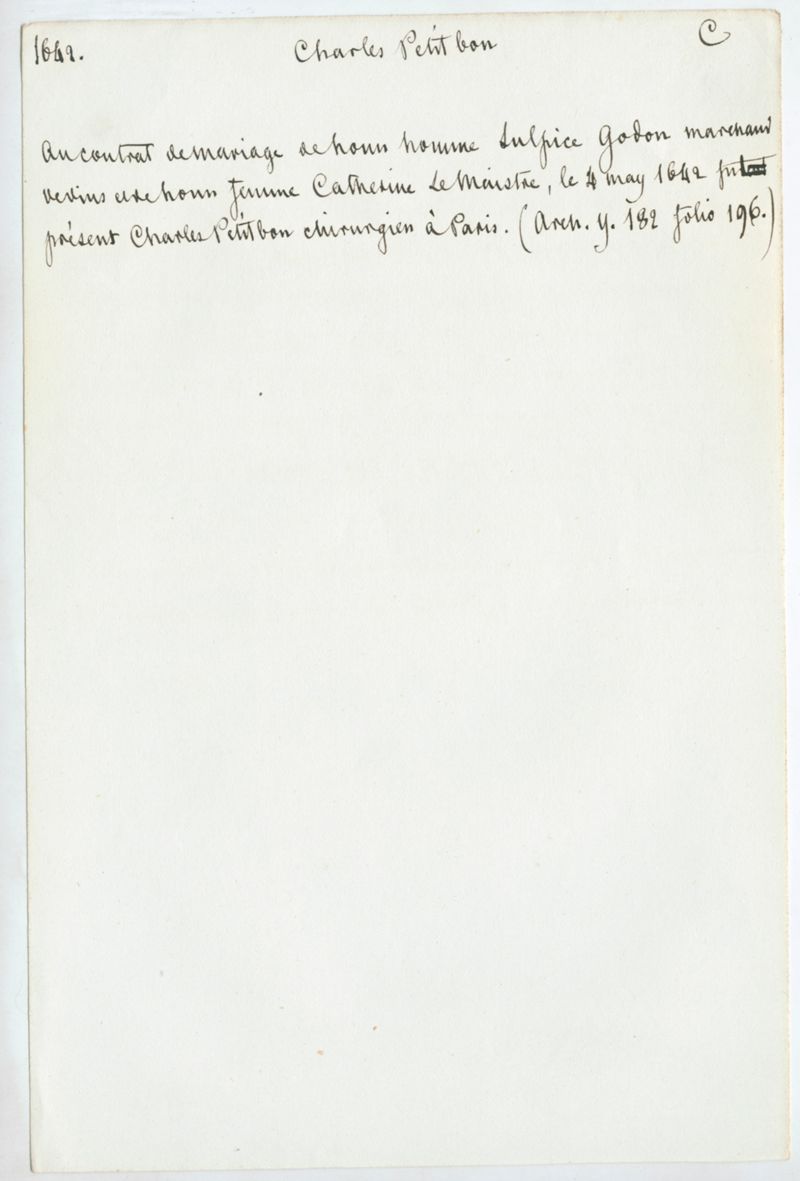 1642. Charles Petit bon C
Au contrat de mariage de honn homme Sulpice Godon marchand
de vins et de honn femme Catherine Le Maistre, le 4 may 1642 fut
présent Charles Petit bon chirurgien à Paris. (Arch. y. 182 folio 196.)